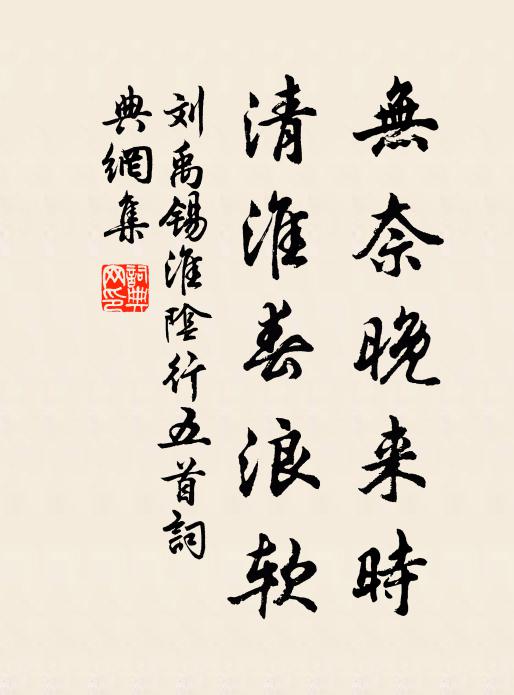 無奈晚来時
清淮春浪软
刘禹锡淮陰行五首詞
典網集
詞典网印